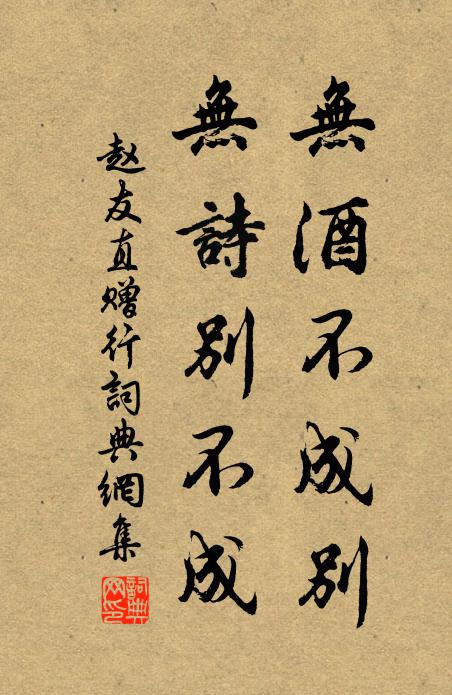 無酒不成別
無詩別不成
赵友直赠行詞典網集
詞典網印